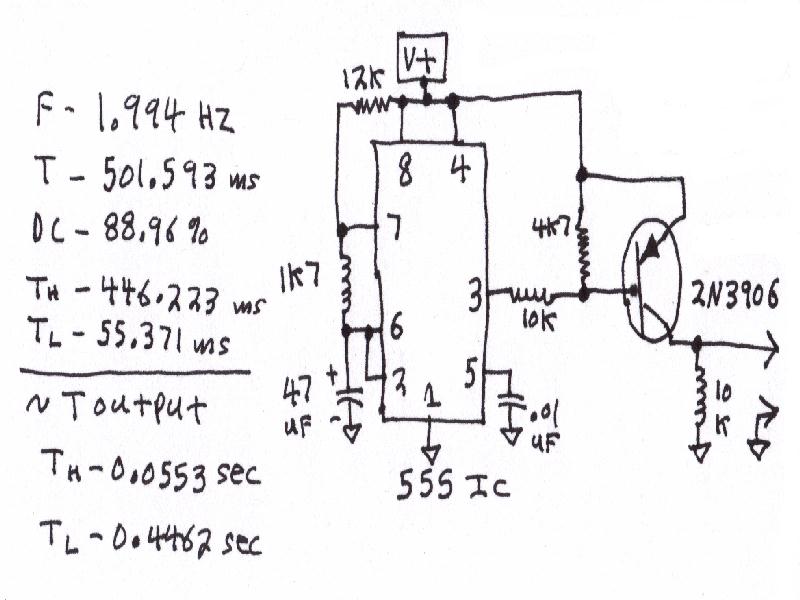 F - 1.994 HZ
T - 501.593 ms
DC - 88.96 %
TH - 446.223 ms
TL - 55.371 ms
~ T output
TH - 0.0553 sec
TL - 0.4462 sec
V+
12K
8 4
7
4K7
1K7
3
10K
2N3906
6
2
5
1
+
47
uF
-
.01
uF
10
K
555 IC